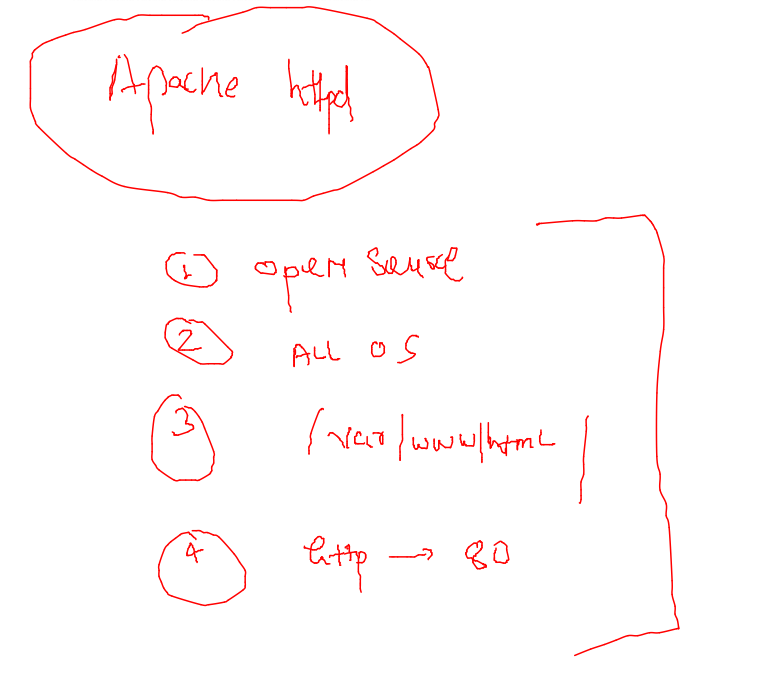 Apache httpd
1 open source
2 ALL OS
3 /var/www/html/
4 http → 80